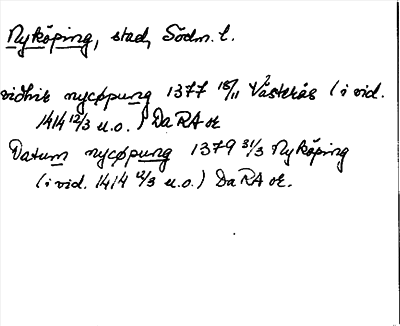 Nyköping, stad, Södm. l.
vidhir nycøpung 1377 18/11 Västerås (i vid.
1414 12/3 u.o.) Da RA or
Datum nycøpung 1379 31/3 Nyköping
(i vid. 1414 12/3 u.o.) Da RA or.